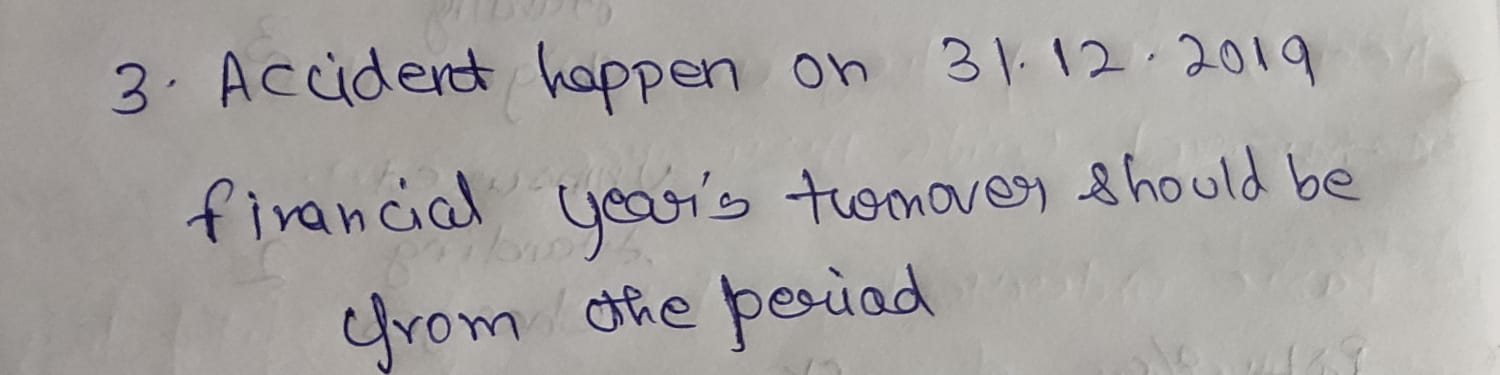 3. Accident happen on 31.12.2019
financial year's turnover should be
from the period